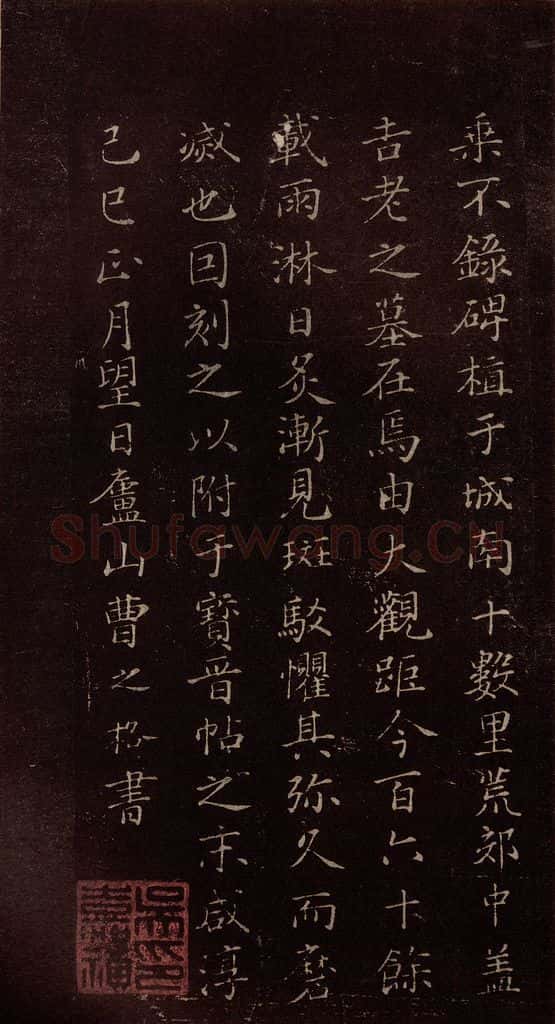 乗不錄碑植于城南十數里荒郊中盖
吉老之墓在焉由大觀距今百六十餘
載雨淋日炙漸見斑駁懼其弥久而磨
滅也因刻之以附于寶晉帖之末咸淳
己巳正月望日廬山曹之格書
Shufawang.cn